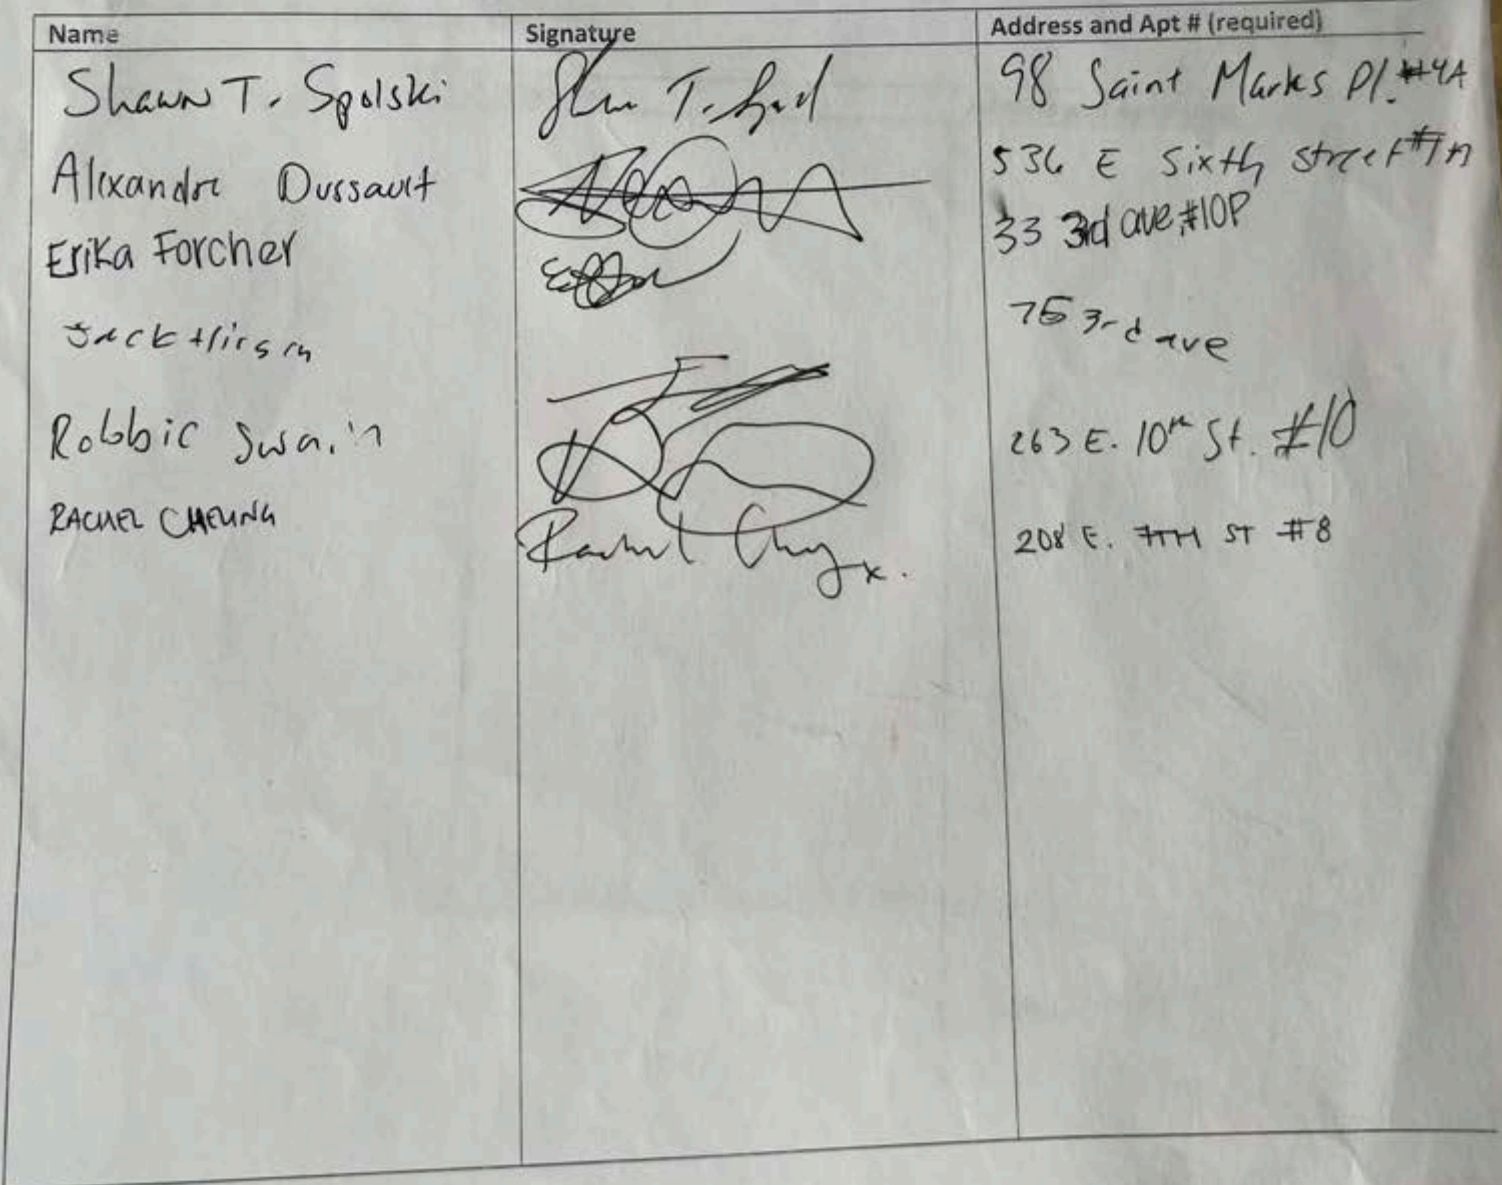 Name Signature Address and Apt # (required)
Shawn T. Spolski 98 Saint Marks Pl. #4A
Alexandre Dussault 536 E Sixth street
Erika Forcher 33 3rd ave, #10P
Jack Hirsch 75 3rd ave
Robbie Swain 263 E. 10th St. #10
RACHEL CHEUNG 208 E. 7TH ST #8